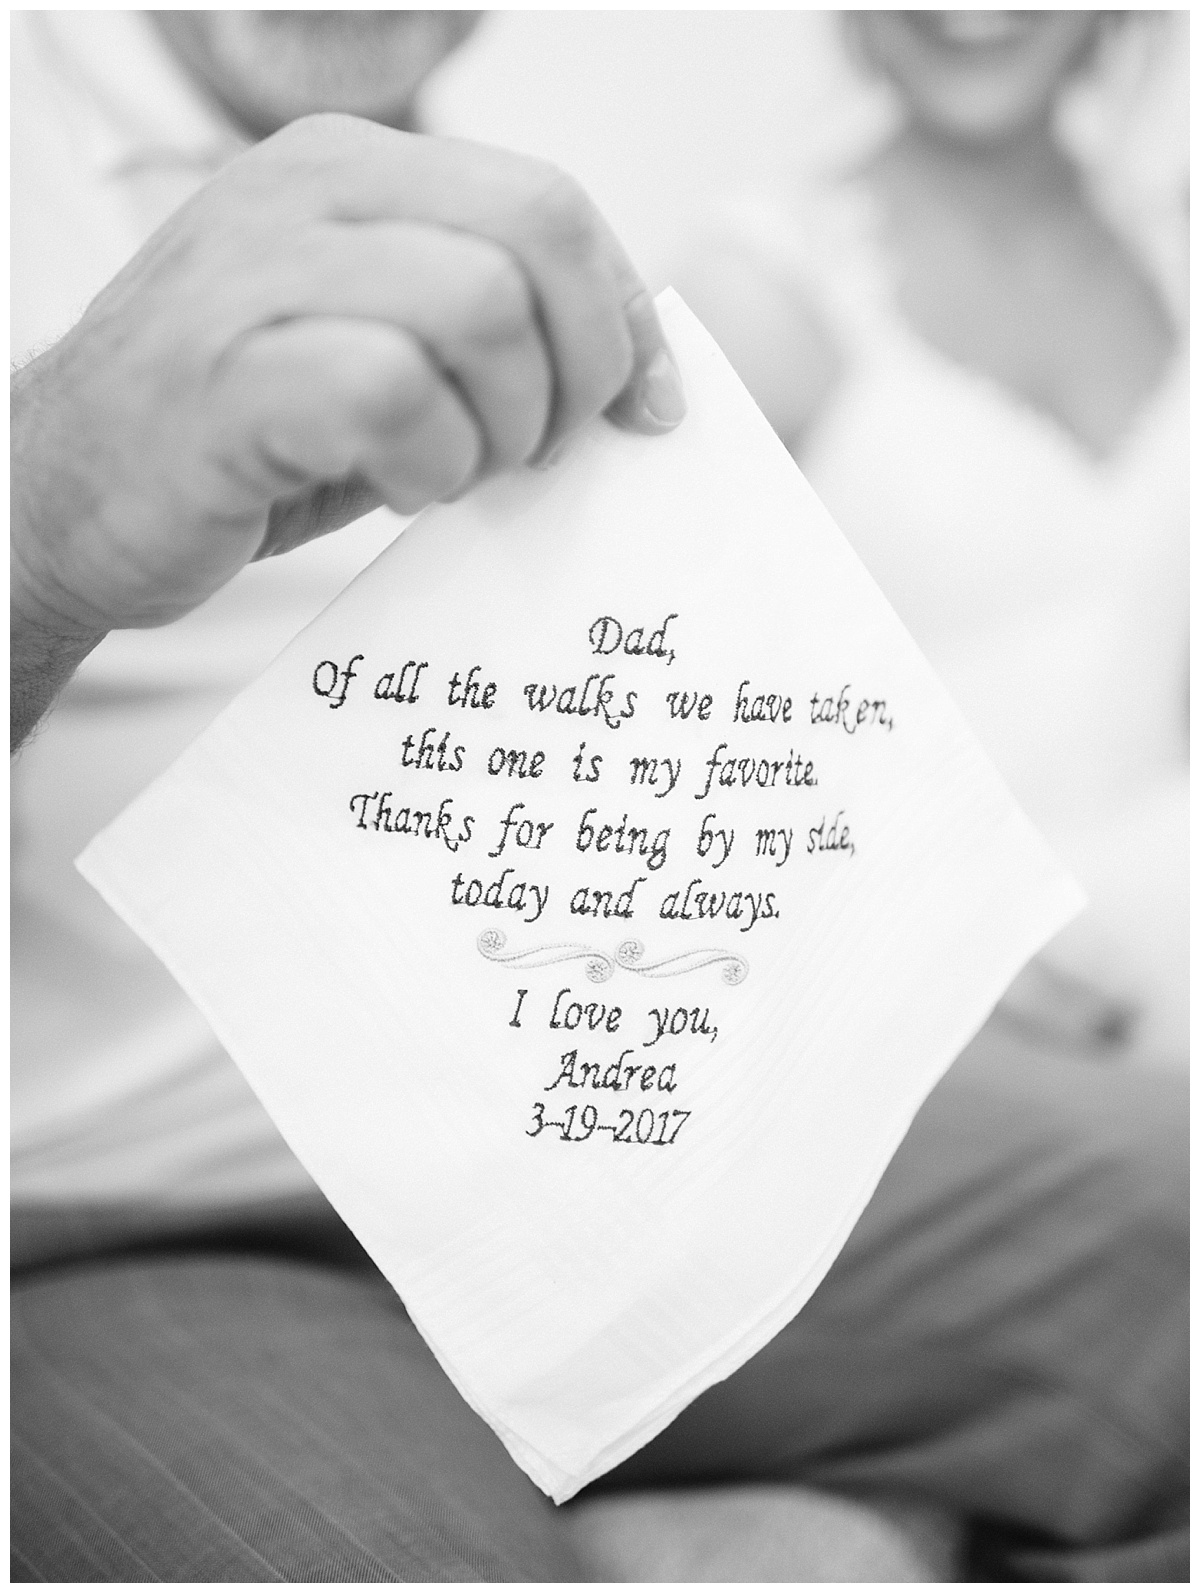 Dad,
Of all the walks we have taken,
this one is my favorite.
Thanks for being by my side,
today and always.
I love you,
Andrea
3-19-2017